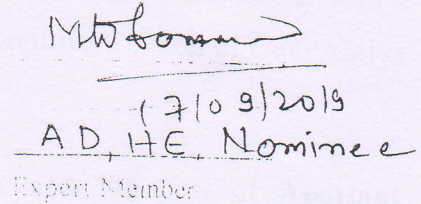 17/09/2019
AD, HE, Nominee
Expert Member